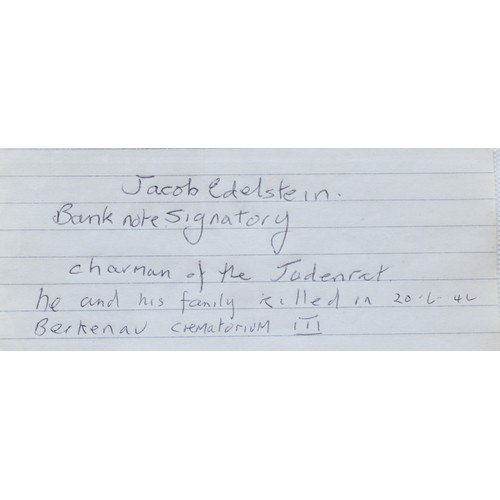 Jacob Edelstein.
Bank note Signatory
charman of the Judenrat.
he and his family killed in 20·6·44
Berkenau crematorium III